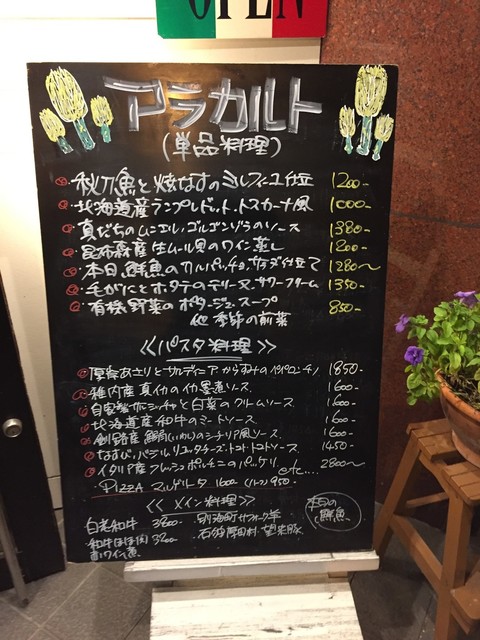 OPEN
アラカルト
(単品料理)
秋刀魚と焼なすのミルフィーユ仕立 1200-
北海道産ランプレドット、トスカーナ風 1000-
真だちのムニエル、ゴルゴンゾーラのソース 1380-
昆布森産生ムール貝のワイン蒸し 1200-
本日鮮魚のカルパッチョ、サラダ仕立て 1280〜
毛がにとホタテのテリーヌ、サワークリーム 1350-
有機野菜のポタージュスープ 850-
他 季節の前菜
<<パスタ料理>>
厚岸あさりとサルディニアからすみのペペロンチーノ 1850-
稚内産真イカのイカ墨煮ソース 1600-
自家製サルシッチャと白菜のクリームソース 1600-
北海道産和牛のミートソース 1600-
釧路産鰯(いわし)のシチリア風ソース 1600-
なすび、バジル、リコッタチーズ、トマトソース 1450-
イタリア産フレッシュポルチーニのパッケリ 2800〜
etc....
PIZZA マルゲリータ 1600 (ハーフ) 950-
<<メイン料理>>
白老和牛 3800- 別海町サフォーク羊
和牛ほほ肉 3200- 石狩厚田村・望来豚
赤ワイン煮
本日の鮮魚